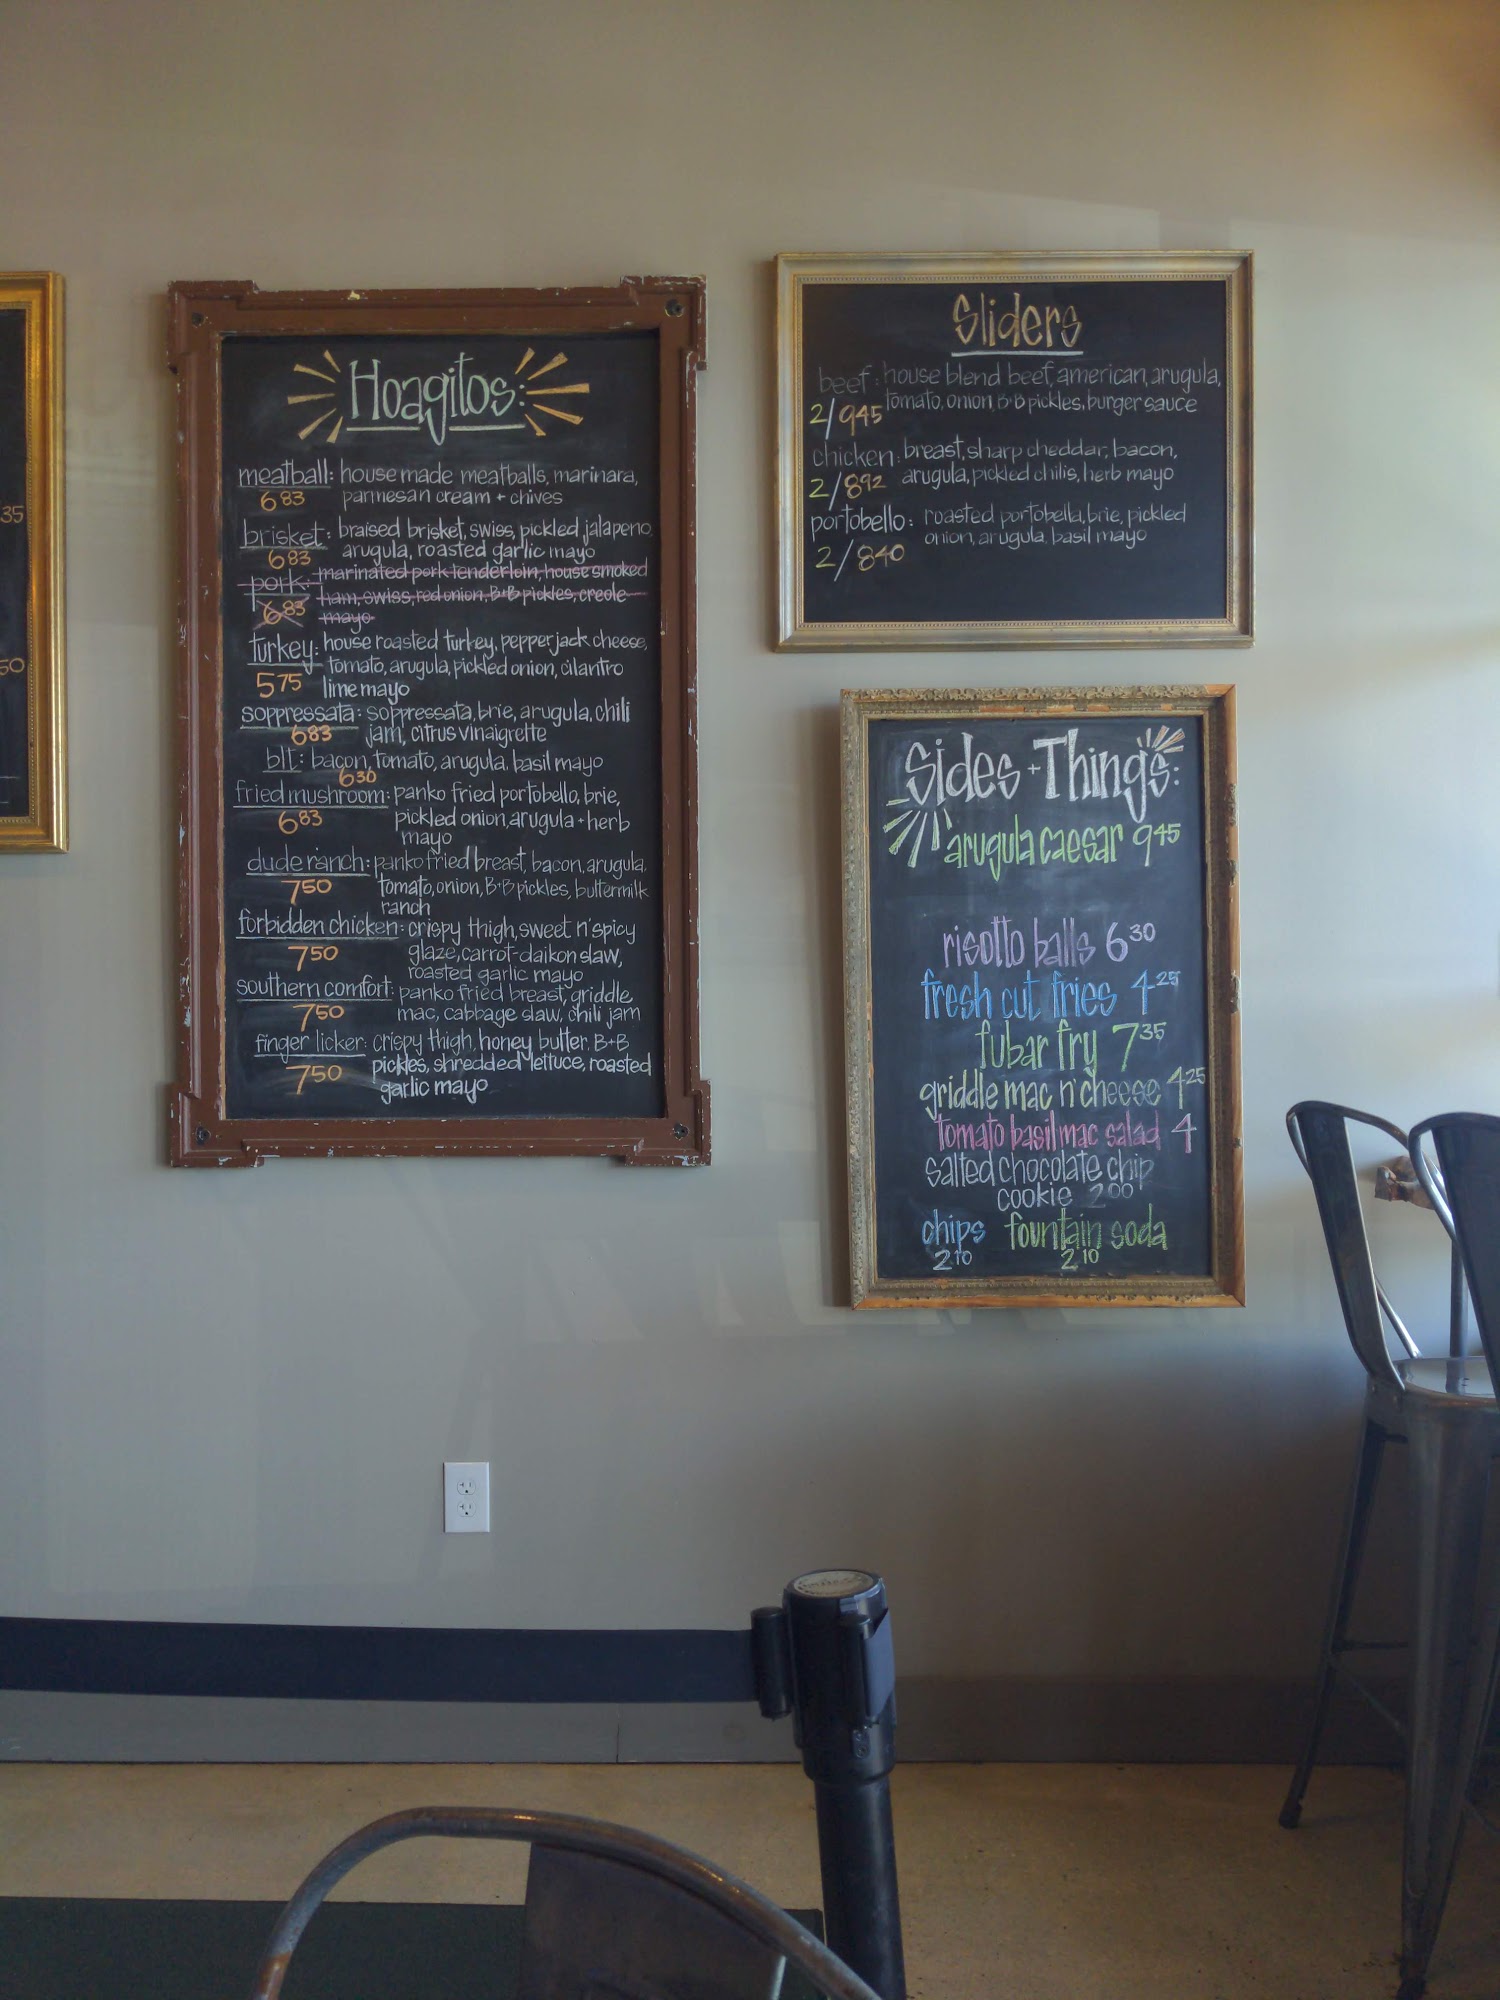 35
50
Hoagitos:
meatball: house made meatballs, marinara,
6 83 parmesan cream + chives
brisket: braised brisket, swiss, pickled jalapeno,
6 83 arugula, roasted garlic mayo
pork: marinated pork tenderloin, house smoked
6 83 ham, swiss, red onion, B+B pickles, creole
mayo
turkey: house roasted turkey, pepperjack cheese,
tomato, arugula, pickled onion, cilantro
5 75 lime mayo
soppressata: soppressata, brie, arugula, chili
6 83 jam, citrus vinaigrette
blt: bacon, tomato, arugula, basil mayo
6 30
fried mushroom: panko fried portobello, brie,
6 83 pickled onion, arugula + herb
mayo
dude ranch: panko fried breast, bacon, arugula,
7 50 tomato, onion, B+B pickles, buttermilk
ranch
forbidden chicken: crispy thigh, sweet n' spicy
7 50 glaze, carrot-daikon slaw,
roasted garlic mayo
southern comfort: panko fried breast, griddle
7 50 mac, cabbage slaw, chili jam
finger licker: crispy thigh, honey butter, B+B
7 50 pickles, shredded lettuce, roasted
garlic mayo
Sliders
beef: house blend beef, american, arugula,
2/9 45 tomato, onion, B+B pickles, burger sauce
chicken: breast, sharp cheddar, bacon,
2/8 92 arugula, pickled chilis, herb mayo
portobello: roasted portobella, brie, pickled
2/8 40 onion, arugula, basil mayo
Sides + Things:
arugula caesar 9 45
risotto balls 6 30
fresh cut fries 4 25
fubar fry 7 35
griddle mac n' cheese 4 25
tomato basil mac salad 4
salted chocolate chip
cookie 2 00
chips fountain soda
2 10 2 10